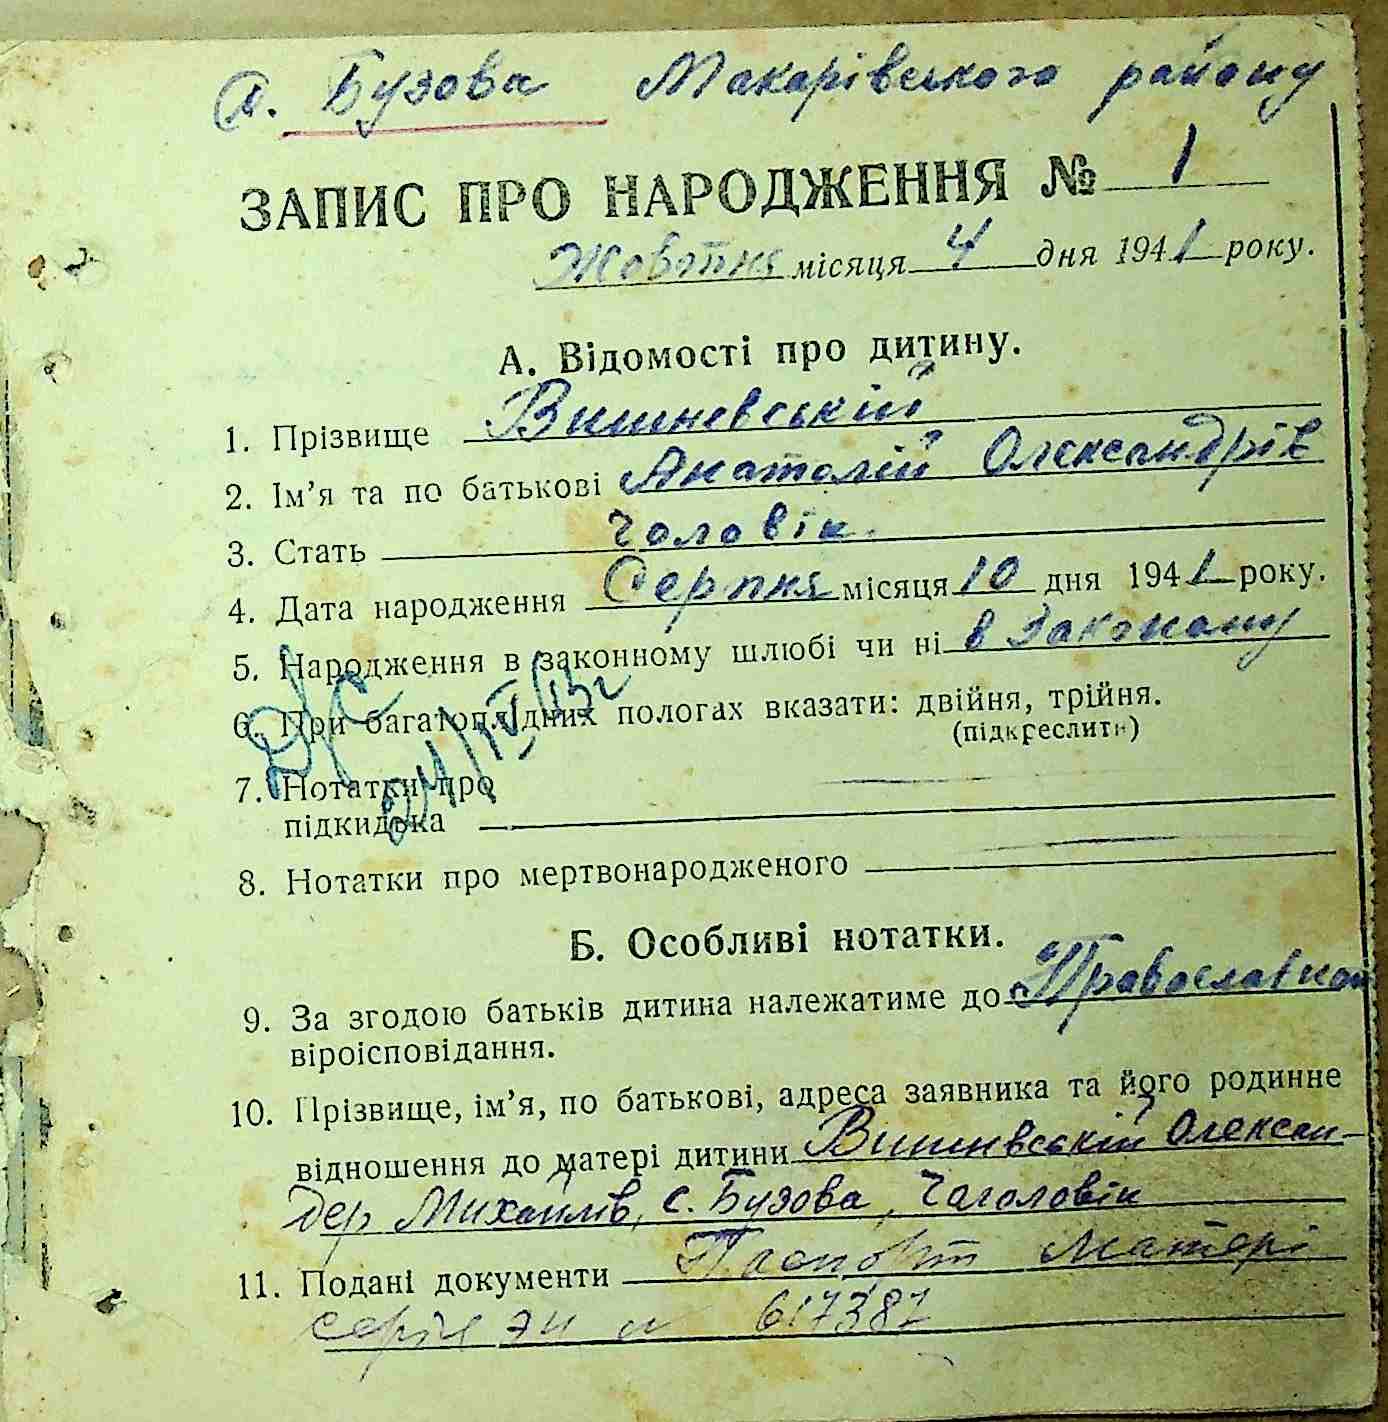 с. Бузова Макарівського району
ЗАПИС ПРО НАРОДЖЕННЯ № 1
Жовтня місяця 4 дня 1941 року.
А. Відомості про дитину.
1. Прізвище Вишневській
2. Ім'я та по батькові Анатолій Олександрів
3. Стать Чоловік.
4. Дата народження Серпня місяця 10 дня 1941 року.
5. Народження в законному шлюбі чи ні в Законому
6. При багатоплідних пологах вказати: двійня, трійня.
(підкреслити)
7. Нотатки про
підкидька
8. Нотатки про мертвонародженого
Б. Особливі нотатки.
9. За згодою батьків дитина належатиме до Православном
віроісповідання.
10. Прізвище, ім'я, по батькові, адреса заявника та його родинне
відношення до матері дитини Вишневській Олексан-
дер Михайлів, с. Бузова, Чаголовік
11. Подані документи Паспорт Матері
серія 617387